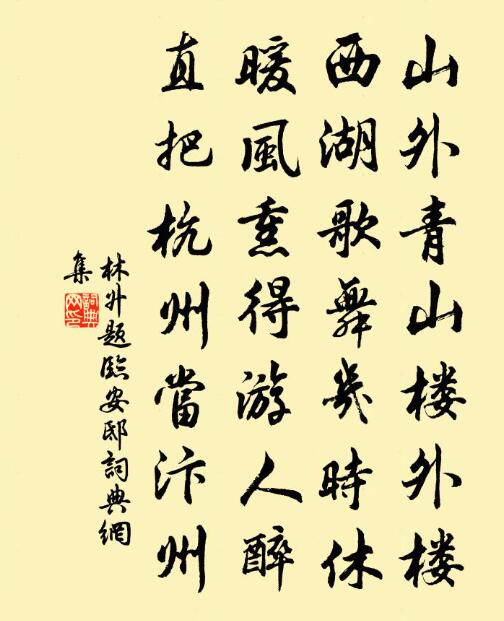 山外青山楼外楼
西湖歌舞幾時休
暖風熏得游人醉
直把杭州當汴州
林升題臨安邸詞典網
集